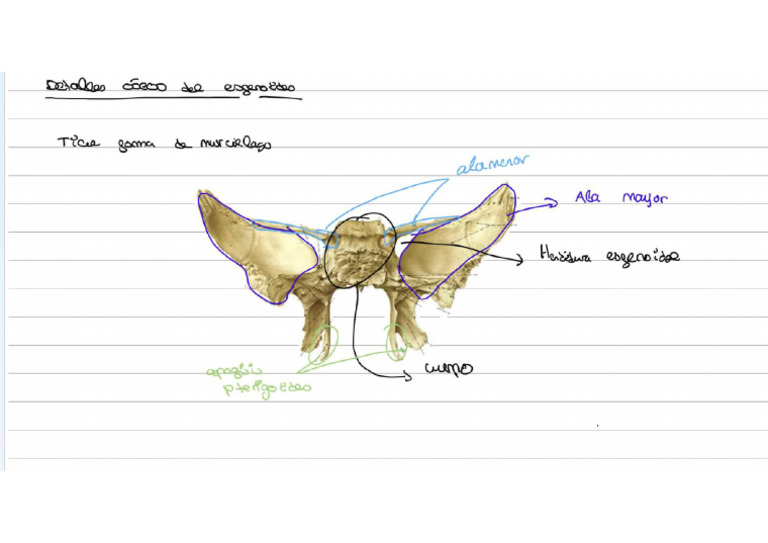 Detalles óseos del esfenoides
Tiene forma de murciélago
ala menor
Ala mayor
Hendidura esfenoidal
apófisis
pterigoides
cuerpo